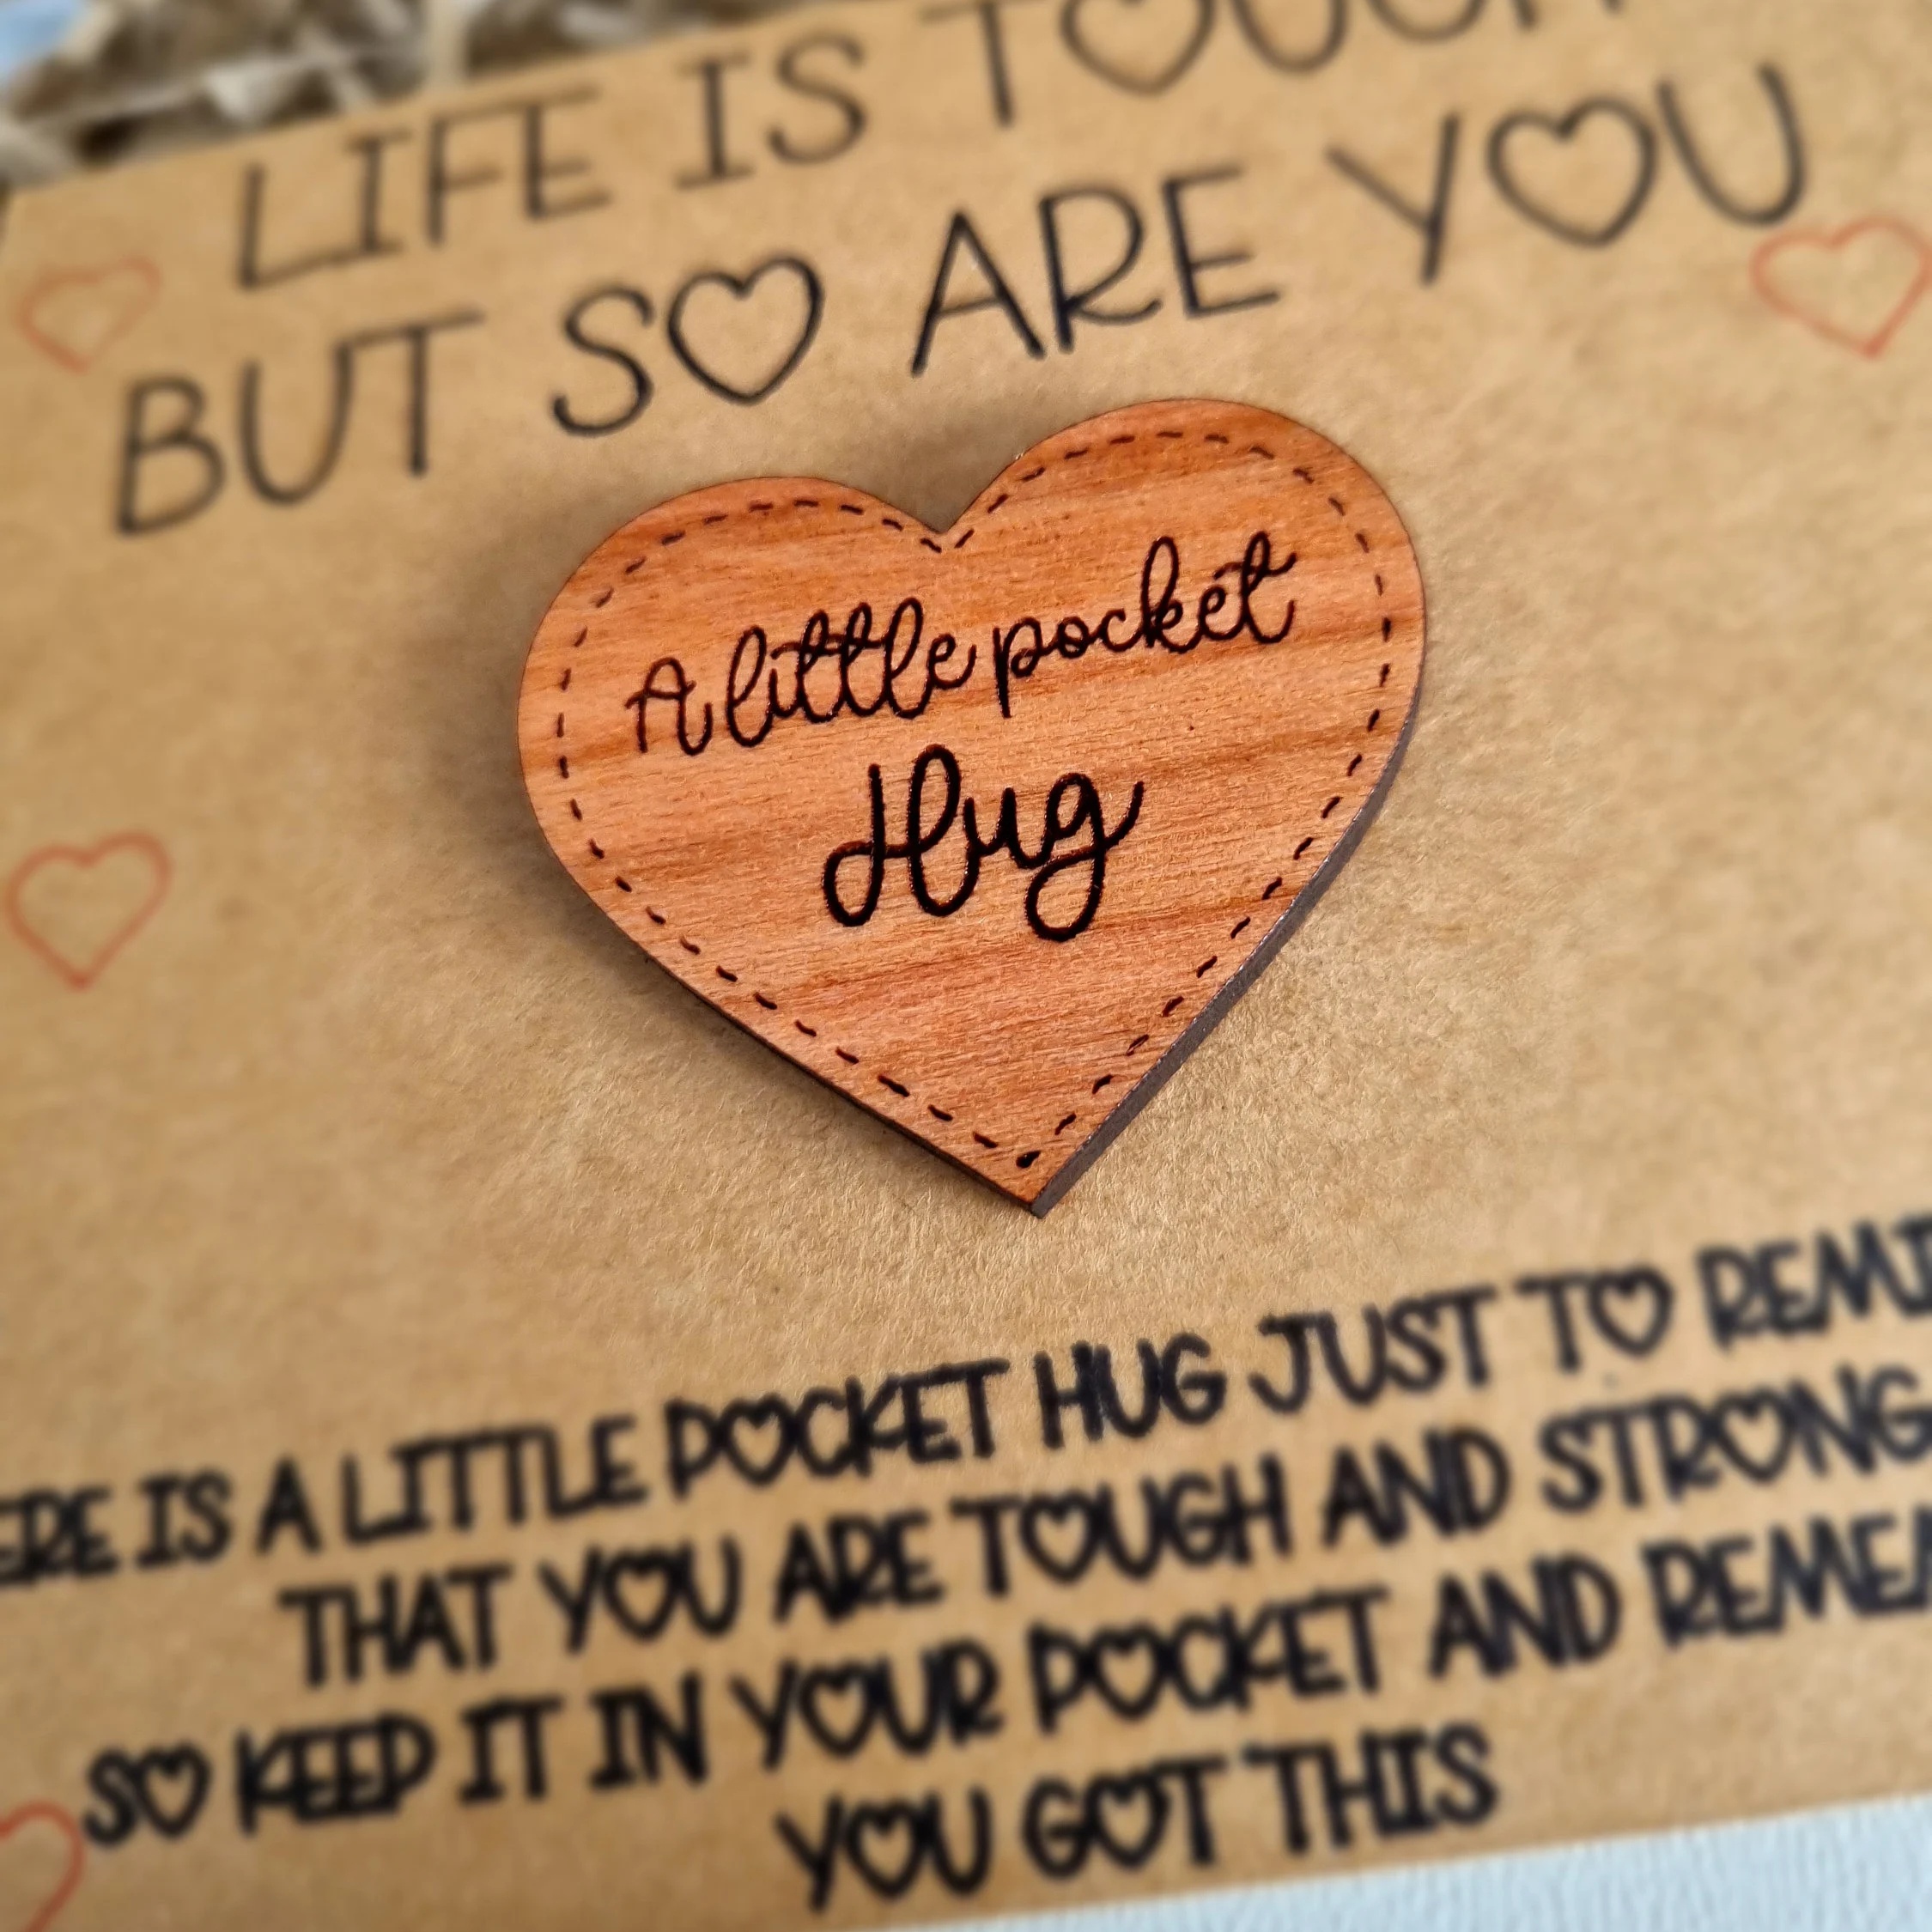 LIFE IS TOUGH
BUT SO ARE YOU
A little pocket
Hug
ERE IS A LITTLE POCKET HUG JUST TO REMI
THAT YOU ARE TOUGH AND STRONG
SO KEEP IT IN YOUR POCKET AND REMEM
YOU GOT THIS